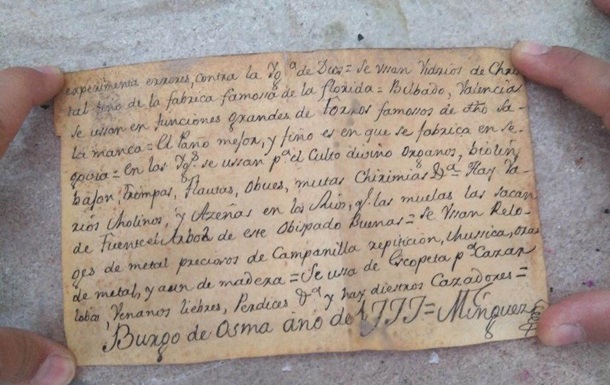 experimenta errores, contra la Yg.ª de Dios = Se ussan Vidrios de Chris
tal fino de la fabrica famossa de la florida = Bilbado, Valencia
se ussan en funciones grandes de Toros famosos de
la manca = El Paño mejor, y fino es en que se fabrica en se
govia = En las Yg.ª se ussan p.ª el Culto divino Organos, biolin,
bajon, Trompas, flautas, Obues, muchas Chirimias &.ª Hay Va
rios Molinos, y Azeñas en los Rios, y las muelas las sacan
de Fuente el Arbol de este Obispado Buenas = Se Ussan Relo
ges de metal preciosos de Campanilla repiticion, Mussica, otros
de metal, y aun de madera = Se ussa de Escopeta p.ª Cazar
lobos, Venados liebres, Perdices &.ª y hay diestros Cazadores =
Burgo de Osma año de 1777 = Minguez